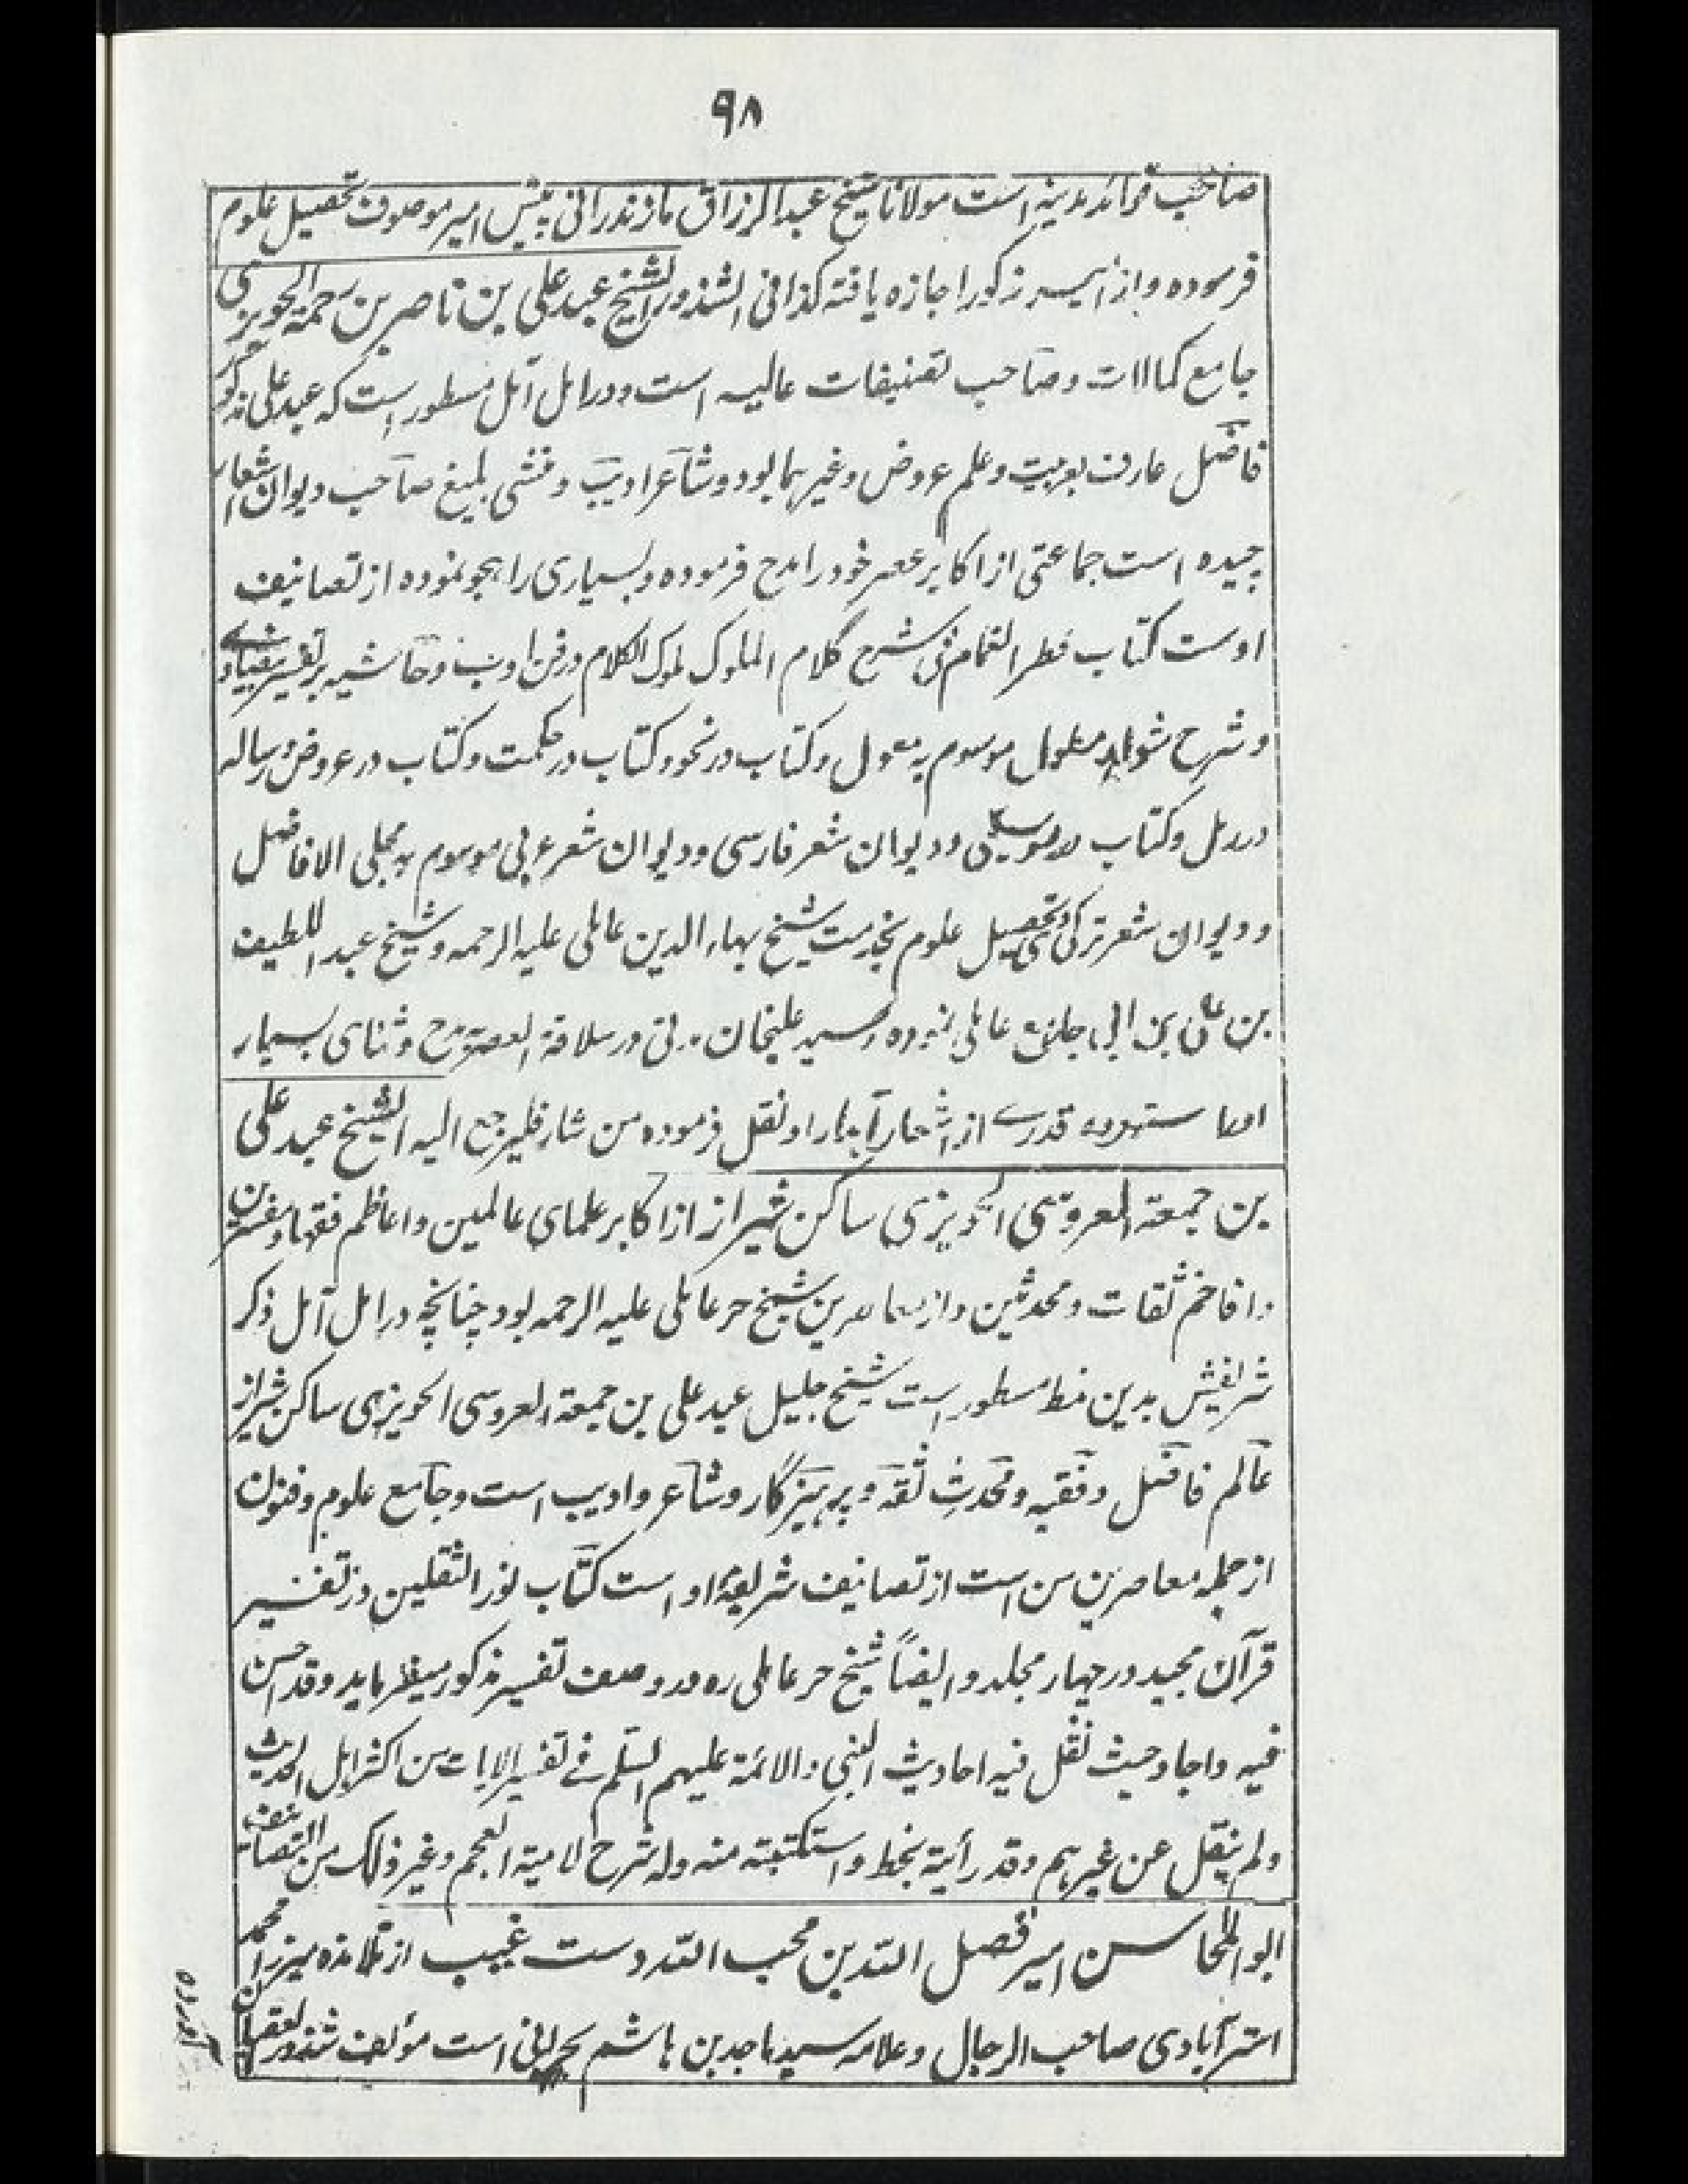 ٩٨
صاحب فوائد مدنیه است مولانا شیخ عبدالرزاق مازندرانی پیش امیر موصوف تحصیل علوم
فرموده و از امیر مذکور اجازه یافته کذا فی الشذور الشیخ عبد علی بن ناصر بن رحمة الحویزی
جامع کمالات و صاحب تصنیفات عالیه است و در امل آمل مسطور است که عبد علی مذکور
فاضل عارف بعربیت و علم عروض و غیرهما بود و شاعر ادیب و منشی بلیغ صاحب دیوان اشعار
چیده است جماعتی از اکابر عصر خود را مدح فرموده و بسیاری را هجو نموده از تصانیف
اوست کتاب قطر الغمام فی شرح کلام الملوک ملوک الکلام در فن ادب و حاشیه بر تفسیر بیضاوی
و شرح شواهد مطول موسوم به معول و کتاب در نحو و کتاب در حکمت و کتاب در عروض و رساله
در رمل و کتاب در موسیقی و دیوان شعر فارسی و دیوان شعر عربی موسوم به مجلی الافاضل
و دیوان شعر ترکی و تحصیل علوم بخدمت شیخ بهاء الدین عاملی علیه الرحمه و شیخ عبد اللطیف
بن علی بن ابی جامع عاملی نموده و سید علیخان مدنی در سلافة العصر مدح و ثنای بسیار
او را ستوده قدری از اشعار آبدار او نقل فرموده من شاء فلیرجع الیه الشیخ عبد علی
بن جمعة العروسی الحویزی ساکن شیراز از اکابر علمای عالمین و اعاظم فقها و مفسرین
و افاخم ثقات و محدثین و از معاصرین شیخ حر عاملی علیه الرحمه بود چنانچه در امل آمل ذکر
شریفش بدین نمط مسطور است شیخ جلیل عبد علی بن جمعة العروسی الحویزی ساکن شیراز
عالم فاضل و فقیه و محدث ثقه و پرهیزگار و شاعر و ادیب است و جامع علوم و فنون
از جمله معاصرین من است از تصانیف شریفهٔ او است کتاب نور الثقلین در تفسیر
قرآن مجید در چهار مجلد و ایضاً شیخ حر عاملی ره در وصف تفسیر مذکور میفرماید و قد احسن
فیه و اجاد حیث نقل فیه احادیث النبی و الائمة علیهم السلم فی تفسیر الایات من اکثر اهل الحدیث
و لم ینقل عن غیرهم و قد رأیته بخطه و استکتبته منه و له شرح لامیة العجم و غیر ذلک من التصانیف
ابو المحاسن امیر فضل الله بن محب الله دست غیب از تلامذه میرزا محمد
استرآبادی صاحب الرجال و علامه سید ماجد بن هاشم بحرانی است مؤلف شذور العقیان